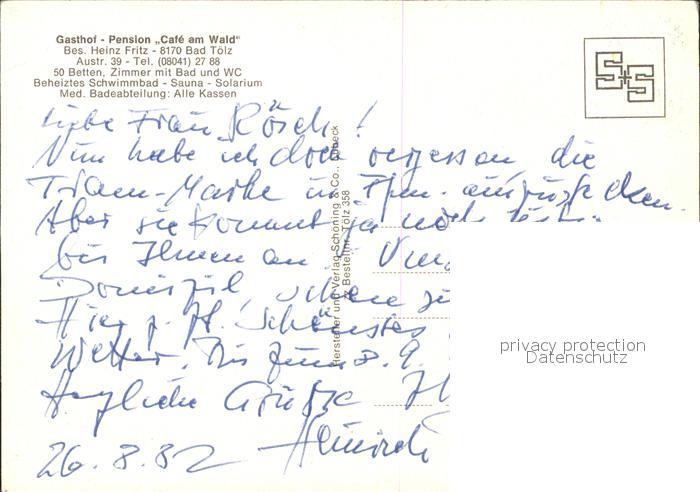 Gasthof - Pension „Café am Wald"
Bes. Heinz Fritz - 8170 Bad Tölz
Austr. 39 - Tel. (08041) 27 88
50 Betten, Zimmer mit Bad und WC
Beheiztes Schwimmbad - Sauna - Solarium
Med. Badeabteilung: Alle Kassen
S+S
Liebe Frau Rösch!
Nun habe ich doch vergessen, die
-Marke
Aber sie kommt ja noch
bei Ihnen an.
Domizil, schön
Hier z. Zt. schönstes
Wetter. Bis zum 8. 9.
Herzliche Grüße
Heinrich
26. 8. 82
Hersteller und Verlag Schöning & Co., Lübeck
Bestellnr. Tölz 358
privacy protection
Datenschutz